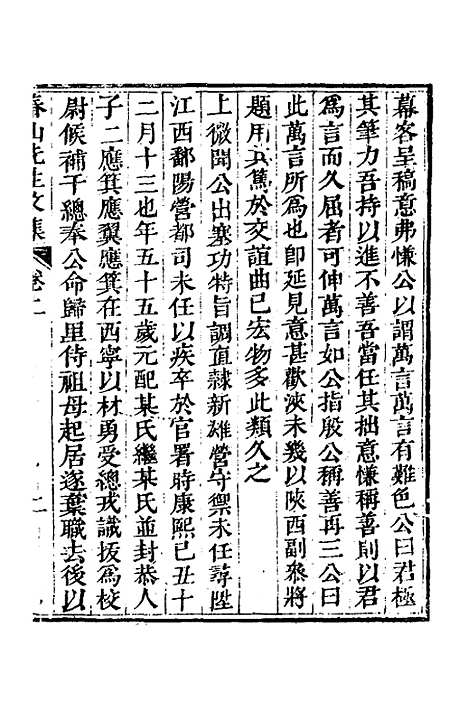 幕客呈稿意弗慊公以謂萬言萬言有難色公曰君極
其筆力吾持以進不善吾當任其拙意慊稱善則以君
爲言而久屈者可伸萬言如公指殷公稱善再三公曰
此萬言所爲也卽延見意甚歡浹未幾以陝西副叅將
題用其篤於交誼曲已宏物多此類久之
上微聞公出塞功特旨調直隷新雄營守禦未任尋陞
江西鄱陽營都司未任以疾卒於官署時康熙己丑十
二月十三也年五十五歲元配某氏繼某氏並封恭人
子二應箕應翼應箕在西寧以材勇受總戎識拔爲校
尉候補千總奉公命歸里侍祖母起居遂棄職去後以
春山先生文集 卷二